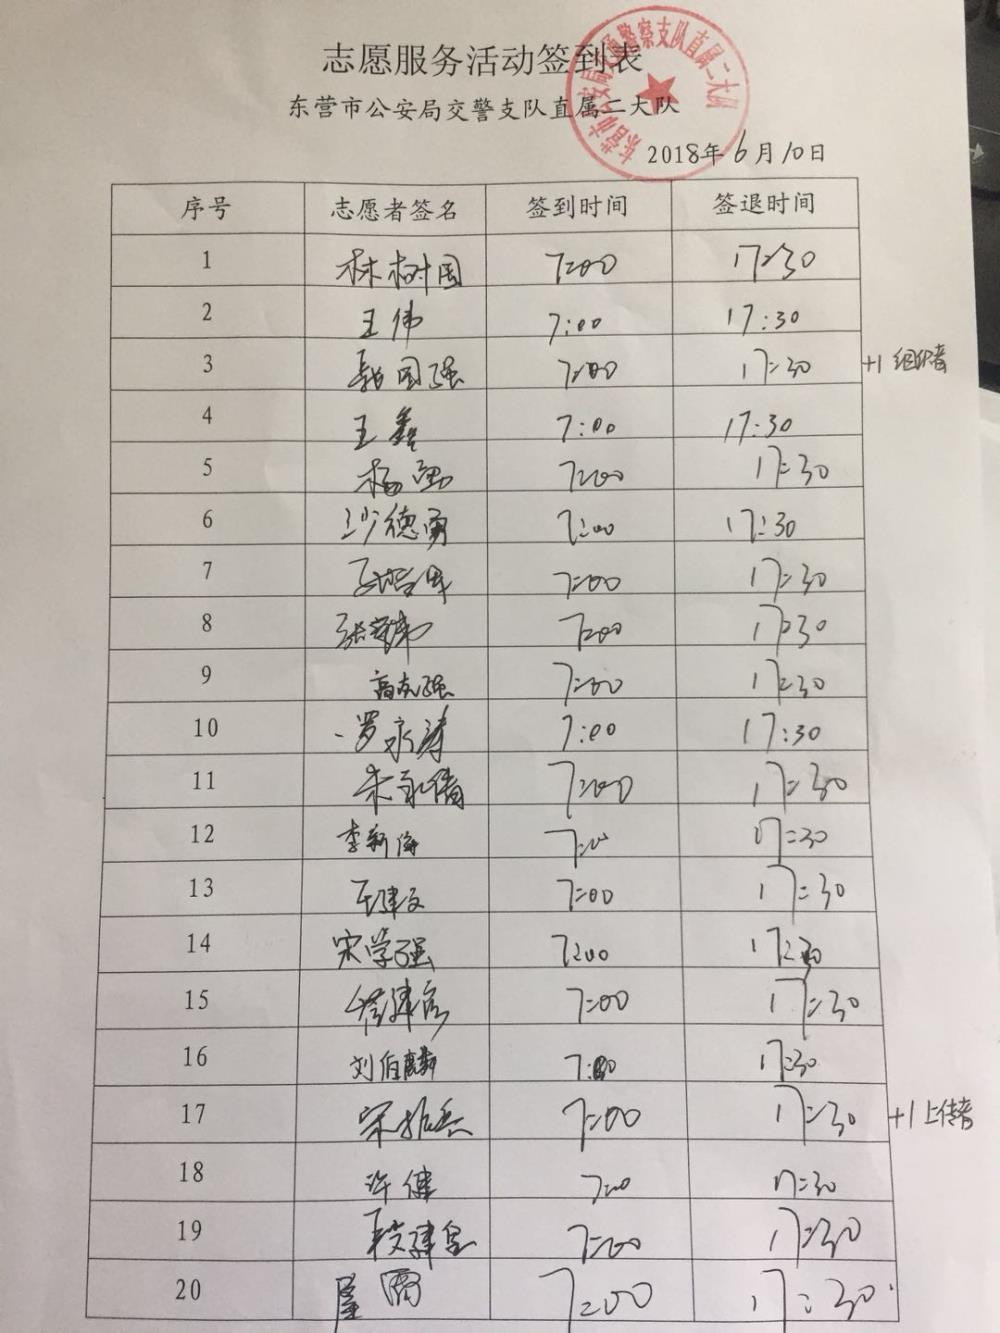 志愿服务活动签到表
东营市公安局交警支队直属二大队
东营市公安局交通警察支队直属二大队
2018年6月10日
序号 志愿者签名 签到时间 签退时间
1 林树国 7:00 17:30
2 王伟 7:00 17:30
3 国强 7:00 17:30 +1 组织者
4 王鑫 7:00 17:30
5 杨勇 7:00 17:30
6 沙德勇 7:00 17:30
7 7:00 17:30
8 张 7:00 17:30
9 高友强 7:00 17:30
10 罗永涛 7:00 17:30
11 朱永倩 7:00 17:30
12 李新海 7:00 17:30
13 王建文 7:00 17:30
14 宋学强 7:00 17:30
15 7:00 17:30
16 刘伯麟 7:00 17:30
17 宋振兵 7:00 17:30 +1 上传者
18 许健 7:00 17:30
19 7:00 17:30
20 7:00 17:30